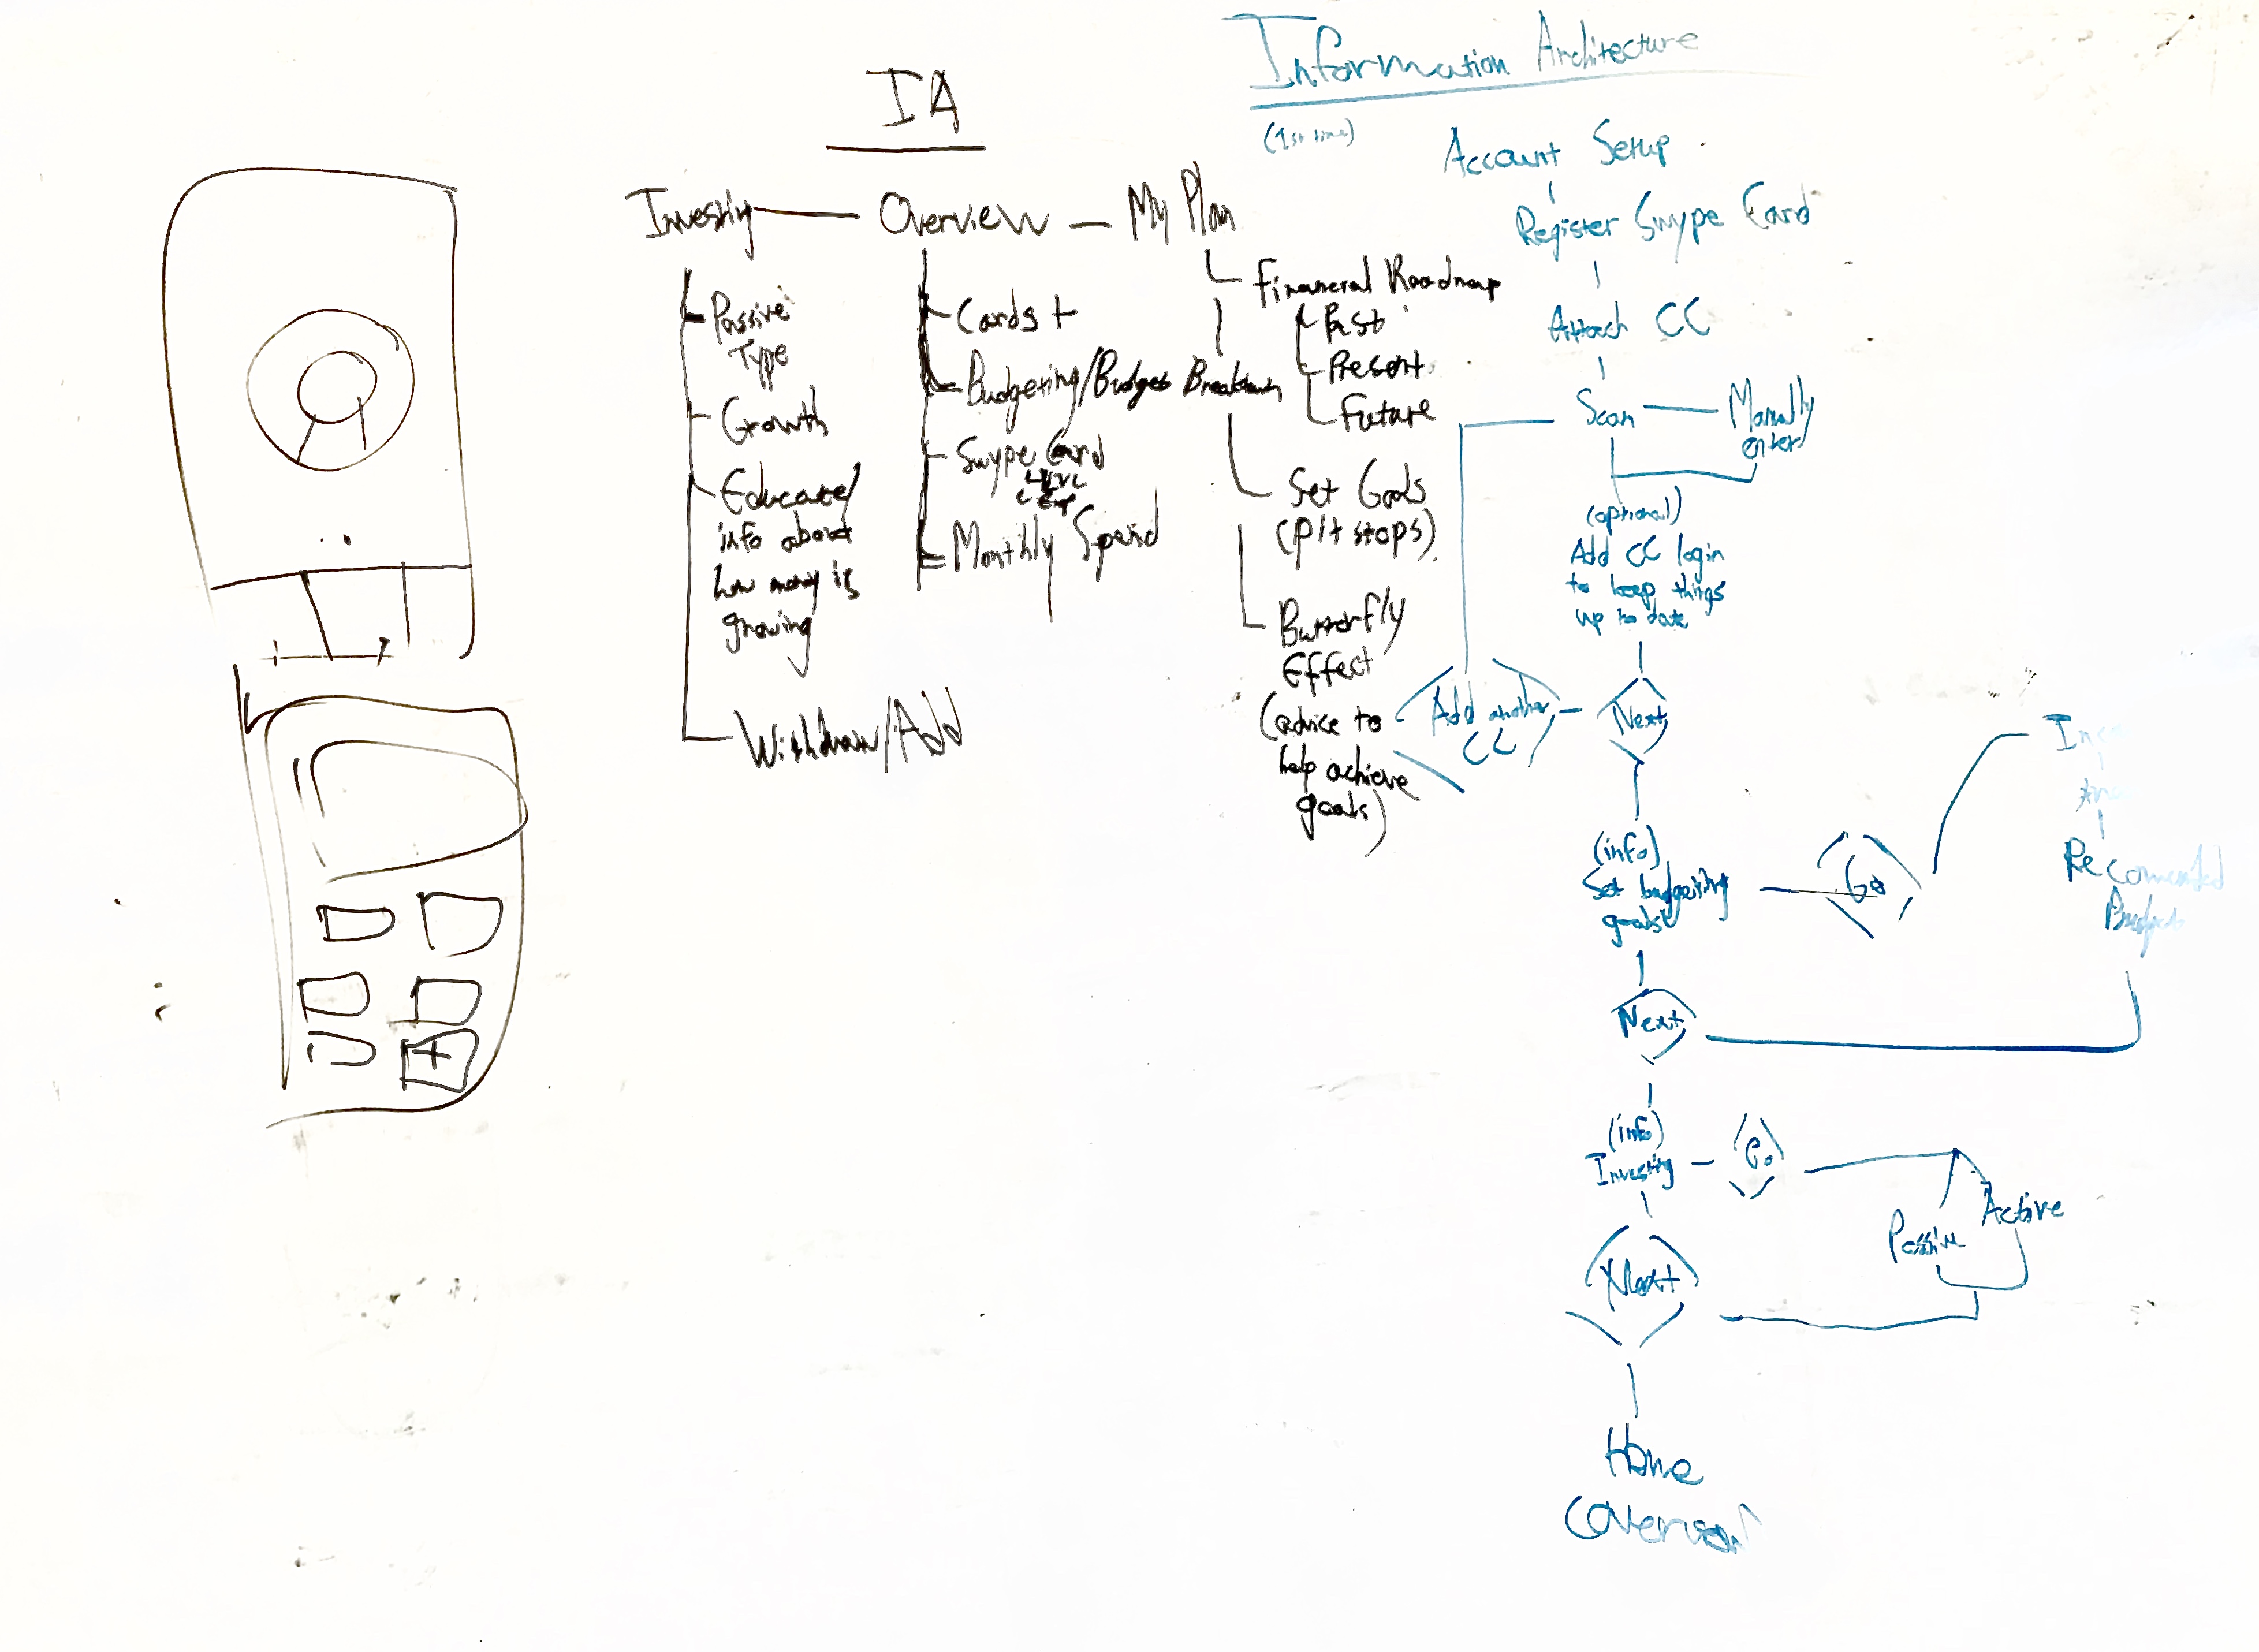 IA
Investing
Overview
My Plan
Passive
Type
Growth
Educate/
info about
how money is
growing
Withdraw/Add
Cards +
Budgeting/Budget Breakdown
Swype Card
LVL
Exp
Monthly Spend
Financial Roadmap
Past
Present
Future
Set Goals
(pit stops)
Butterfly
Effect
(advice to
help achieve
goals)
Information Architecture
(1st time)
Account Setup
Register Swype Card
Attach CC
Scan
Manually
enter
(optional)
Add CC login
to keep things
up to date
Add another
CC
Next
(info)
Set budgeting
goals
Go
Recomended
Budget
Next
(info)
Investing
Go
Passive
Active
Next
Home
(Overview)
+